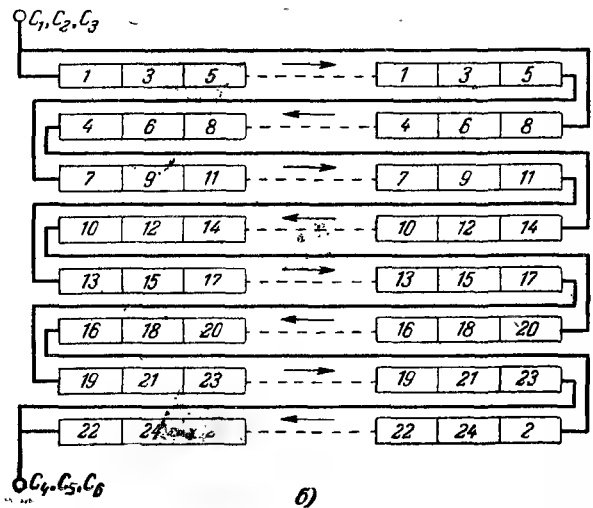 C₁, C₂, C₃
1 3 5 1 3 5
4 6 8 4 6 8
7 9 11 7 9 11
10 12 14 10 12 14
13 15 17 13 15 17
16 18 20 16 18 20
19 21 23 19 21 23
22 24 22 24 2
C₄, C₅, C₆
б)